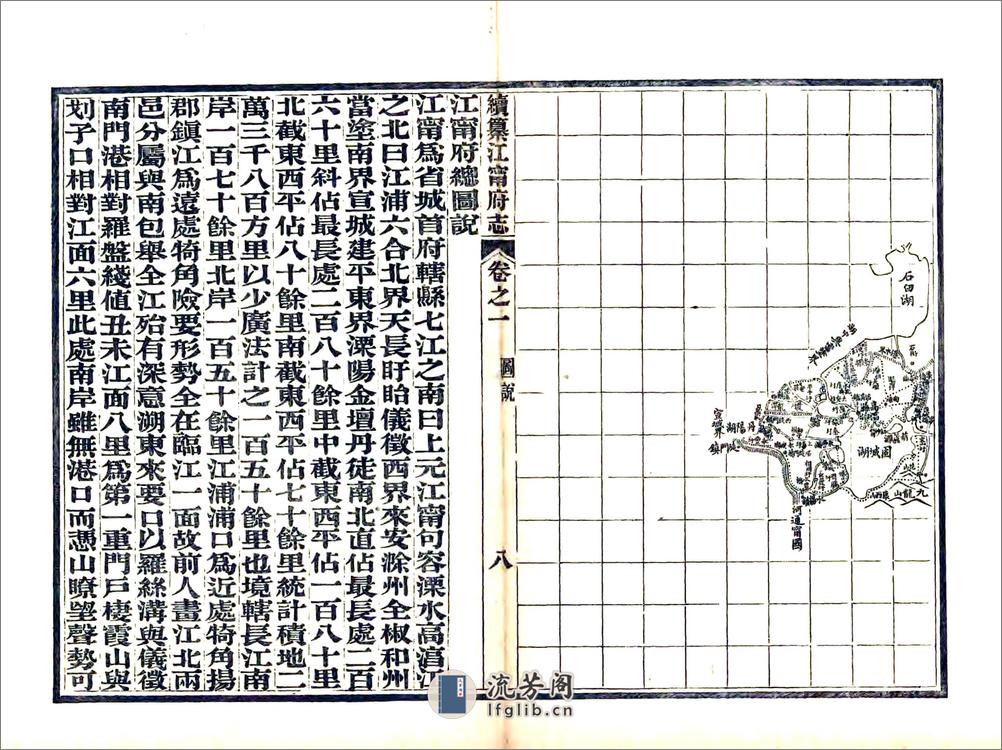 石臼湖
固城湖
丹陽湖
宣城界
九龍山
河通甯國
續纂江甯府志
卷之一
圖說
八
江甯府總圖說
江甯為省城首府轄縣七江之南曰上元江甯句容溧水高淳江
之北曰江浦六合北界天長盱眙儀徵西界來安滁州全椒和州
當塗南界宣城建平東界溧陽金壇丹徒南北直佔最長處二百
六十里斜佔最長處二百八十餘里中截東西平佔一百八十里
北截東西平佔八十餘里南截東西平佔七十餘里統計積地二
萬三千八百方里以少廣法計之一百五十餘里也境轄長江南
岸一百七十餘里北岸一百五十餘里江浦浦口為近處犄角揚
郡鎮江為遠處犄角險要形勢全在臨江一面故前人畫江北兩
邑分屬與南包舉全江殆有深意溯東來要口以羅絲溝與儀徵
南門港相對羅盤綫値丑未江面八里為第一重門戶棲霞山與
划子口相對江面六里此處南岸雖無港口而憑山瞭望聲勢可
流芳阁
lfglib.cn